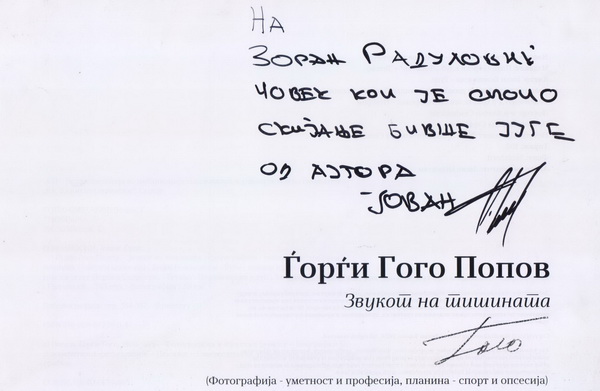 На
Зоран Радуловиќ
човек кои је споио
скијање бивше југе
од аутора
Јован
Ѓорѓи Гого Попов
Звукот на тишината
Гого
(Фотографија - уметност и професија, планина - спорт и опсесија)